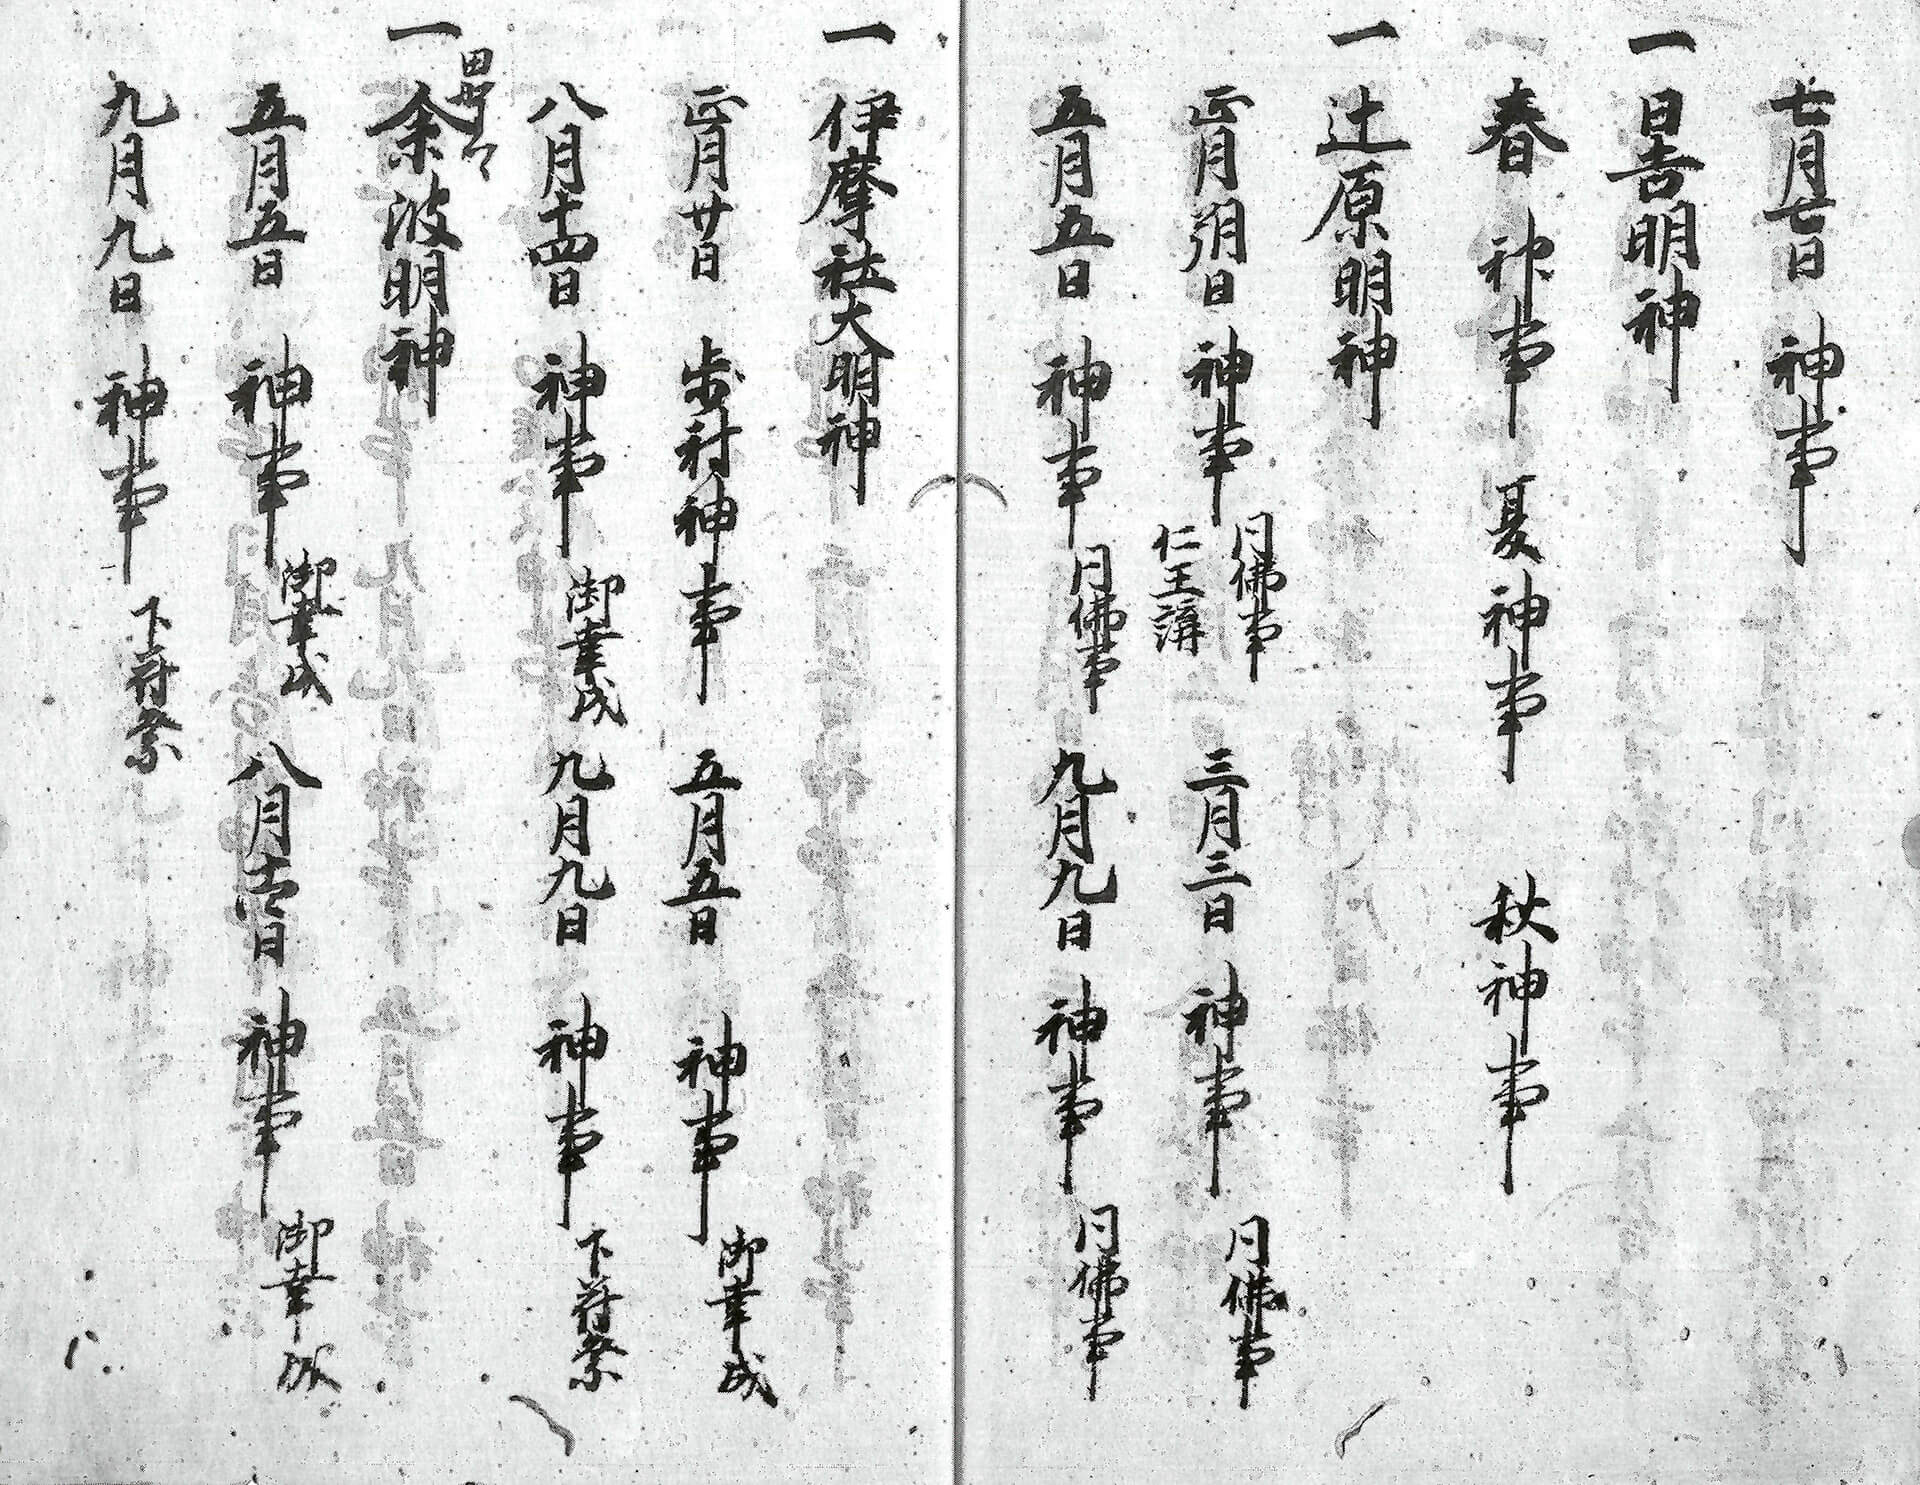 七月七日　神事
一　日吉明神
春神事　夏神事　秋神事
一　辻原明神
正月朔日　神事　同佛事　仁王講　三月三日　神事　同佛事
五月五日　神事　同佛事　九月九日　神事　同佛事
一　伊摩社大明神
正月廿日　歩射神事　五月五日　神事　御幸成
八月十四日　神事　御幸成　九月九日　神事　下符祭
一　余波明神
五月五日　神事　御幸成　八月十四日　神事　御幸成
九月九日　神事　下符祭